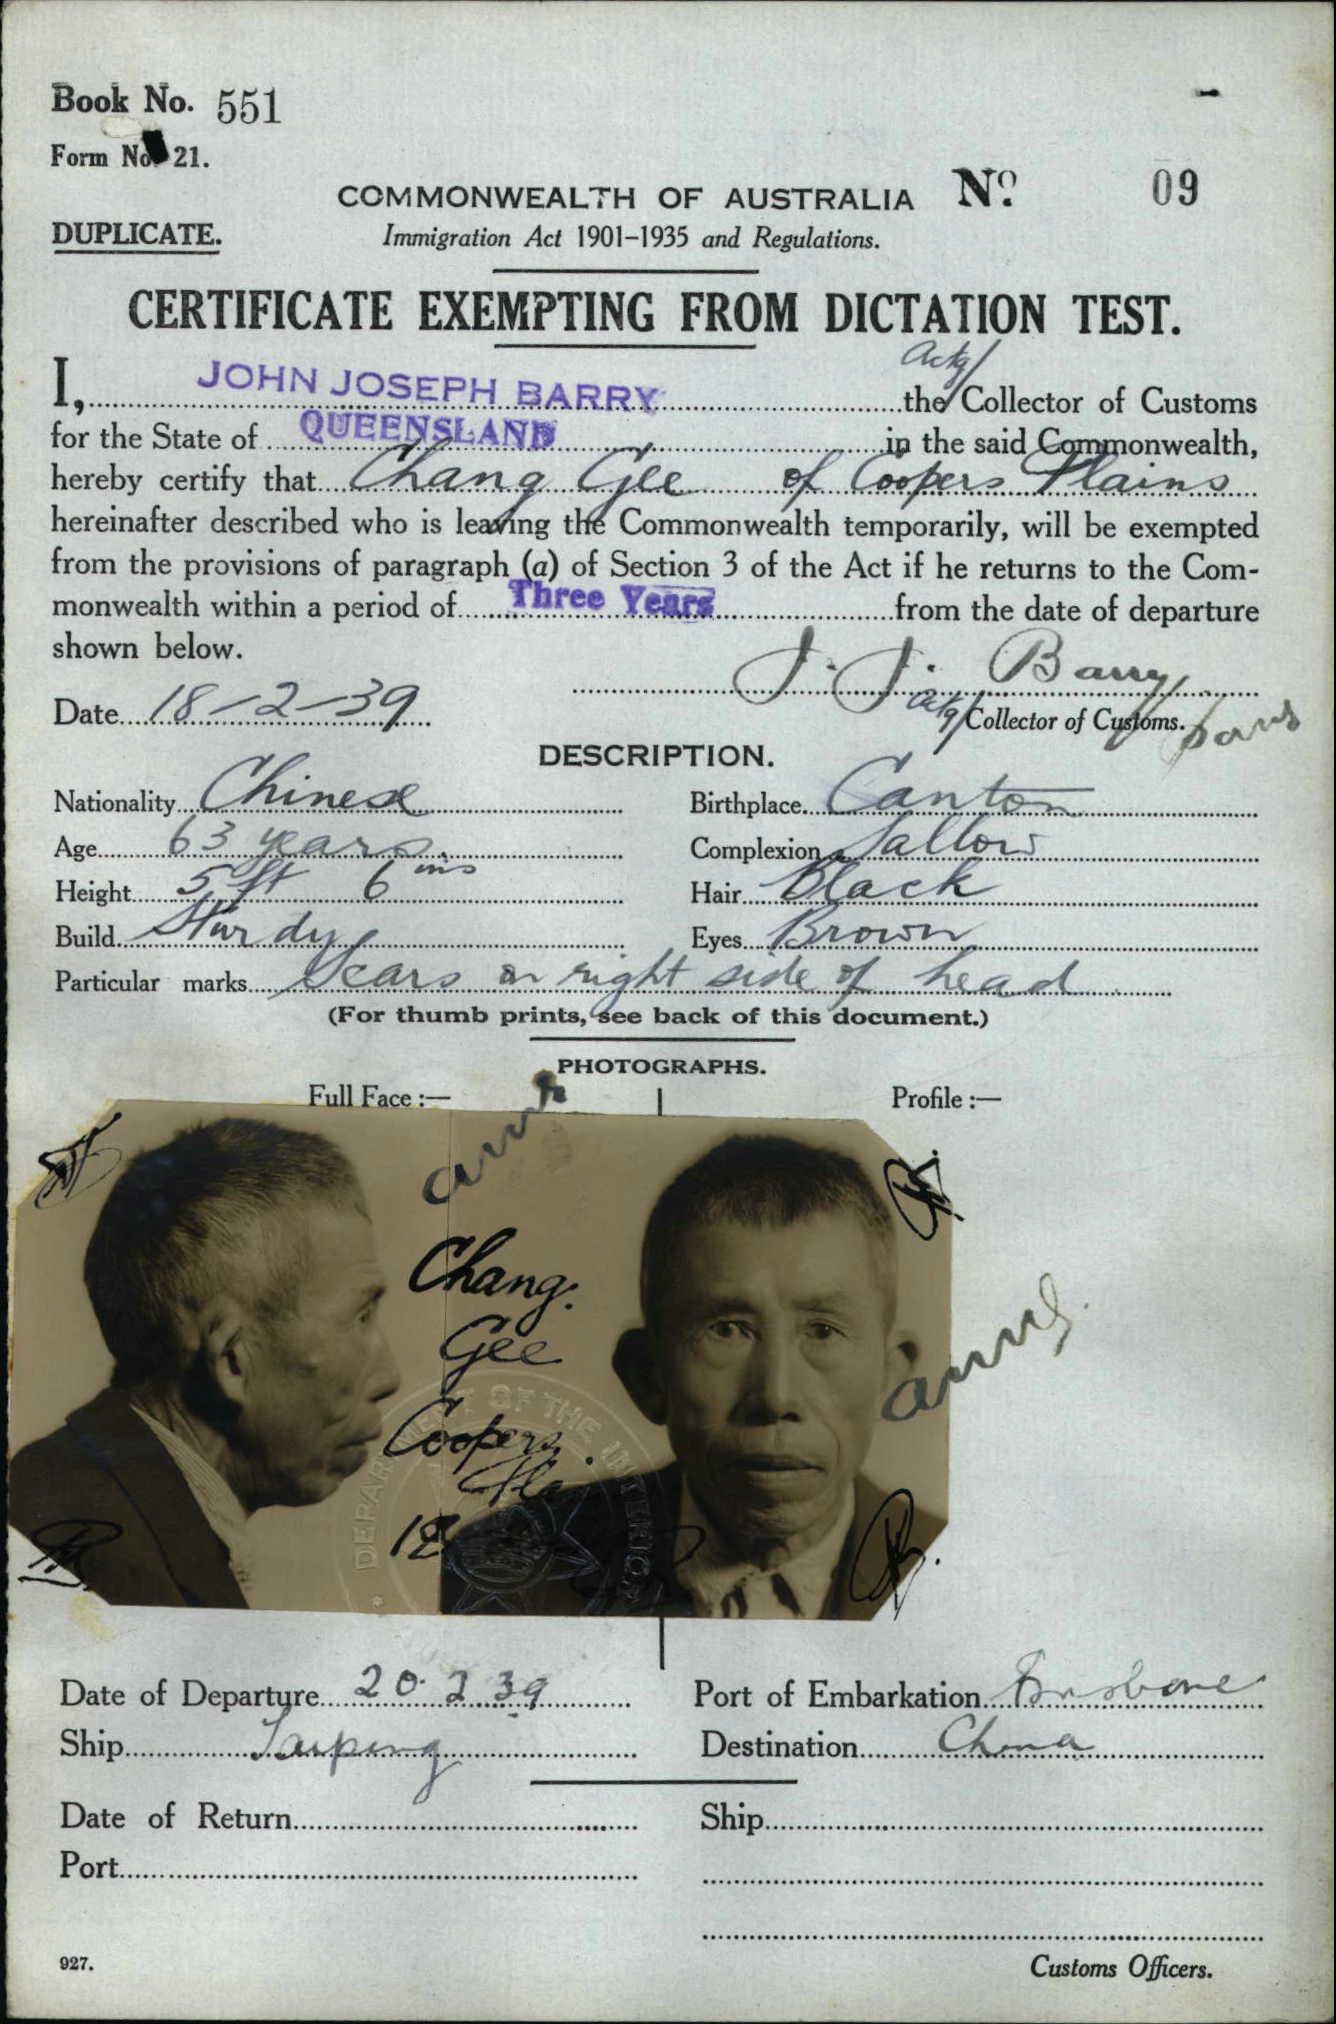 Book No. 551
Form No. 21.
COMMONWEALTH OF AUSTRALIA Nº 09
DUPLICATE.
Immigration Act 1901–1935 and Regulations.
CERTIFICATE EXEMPTING FROM DICTATION TEST.
I, JOHN JOSEPH BARRY the Actg/ Collector of Customs
for the State of QUEENSLAND in the said Commonwealth,
hereby certify that Chang Gee of Coopers Plains
hereinafter described who is leaving the Commonwealth temporarily, will be exempted
from the provisions of paragraph (a) of Section 3 of the Act if he returns to the Com-
monwealth within a period of Three Years from the date of departure
shown below.
J. J. Barry
Date 18-2-39 Actg/ Collector of Customs.
DESCRIPTION.
Nationality Chinese Birthplace Canton
Age 63 years Complexion Sallow
Height 5 ft 6 ins Hair Black
Build Sturdy Eyes Brown
Particular marks Scars on right side of head
(For thumb prints, see back of this document.)
PHOTOGRAPHS.
Full Face :— Profile :—
Chang
Gee
Coopers
Pla
18
DEPARTMENT OF THE INTERIOR
Date of Departure 20.2.39 Port of Embarkation Brisbane
Ship Taiping Destination China
Date of Return Ship
Port
927. Customs Officers.